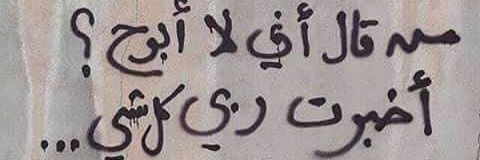 من قال أني لا أبوح ؟
أخبرت ربي كل شيء ...